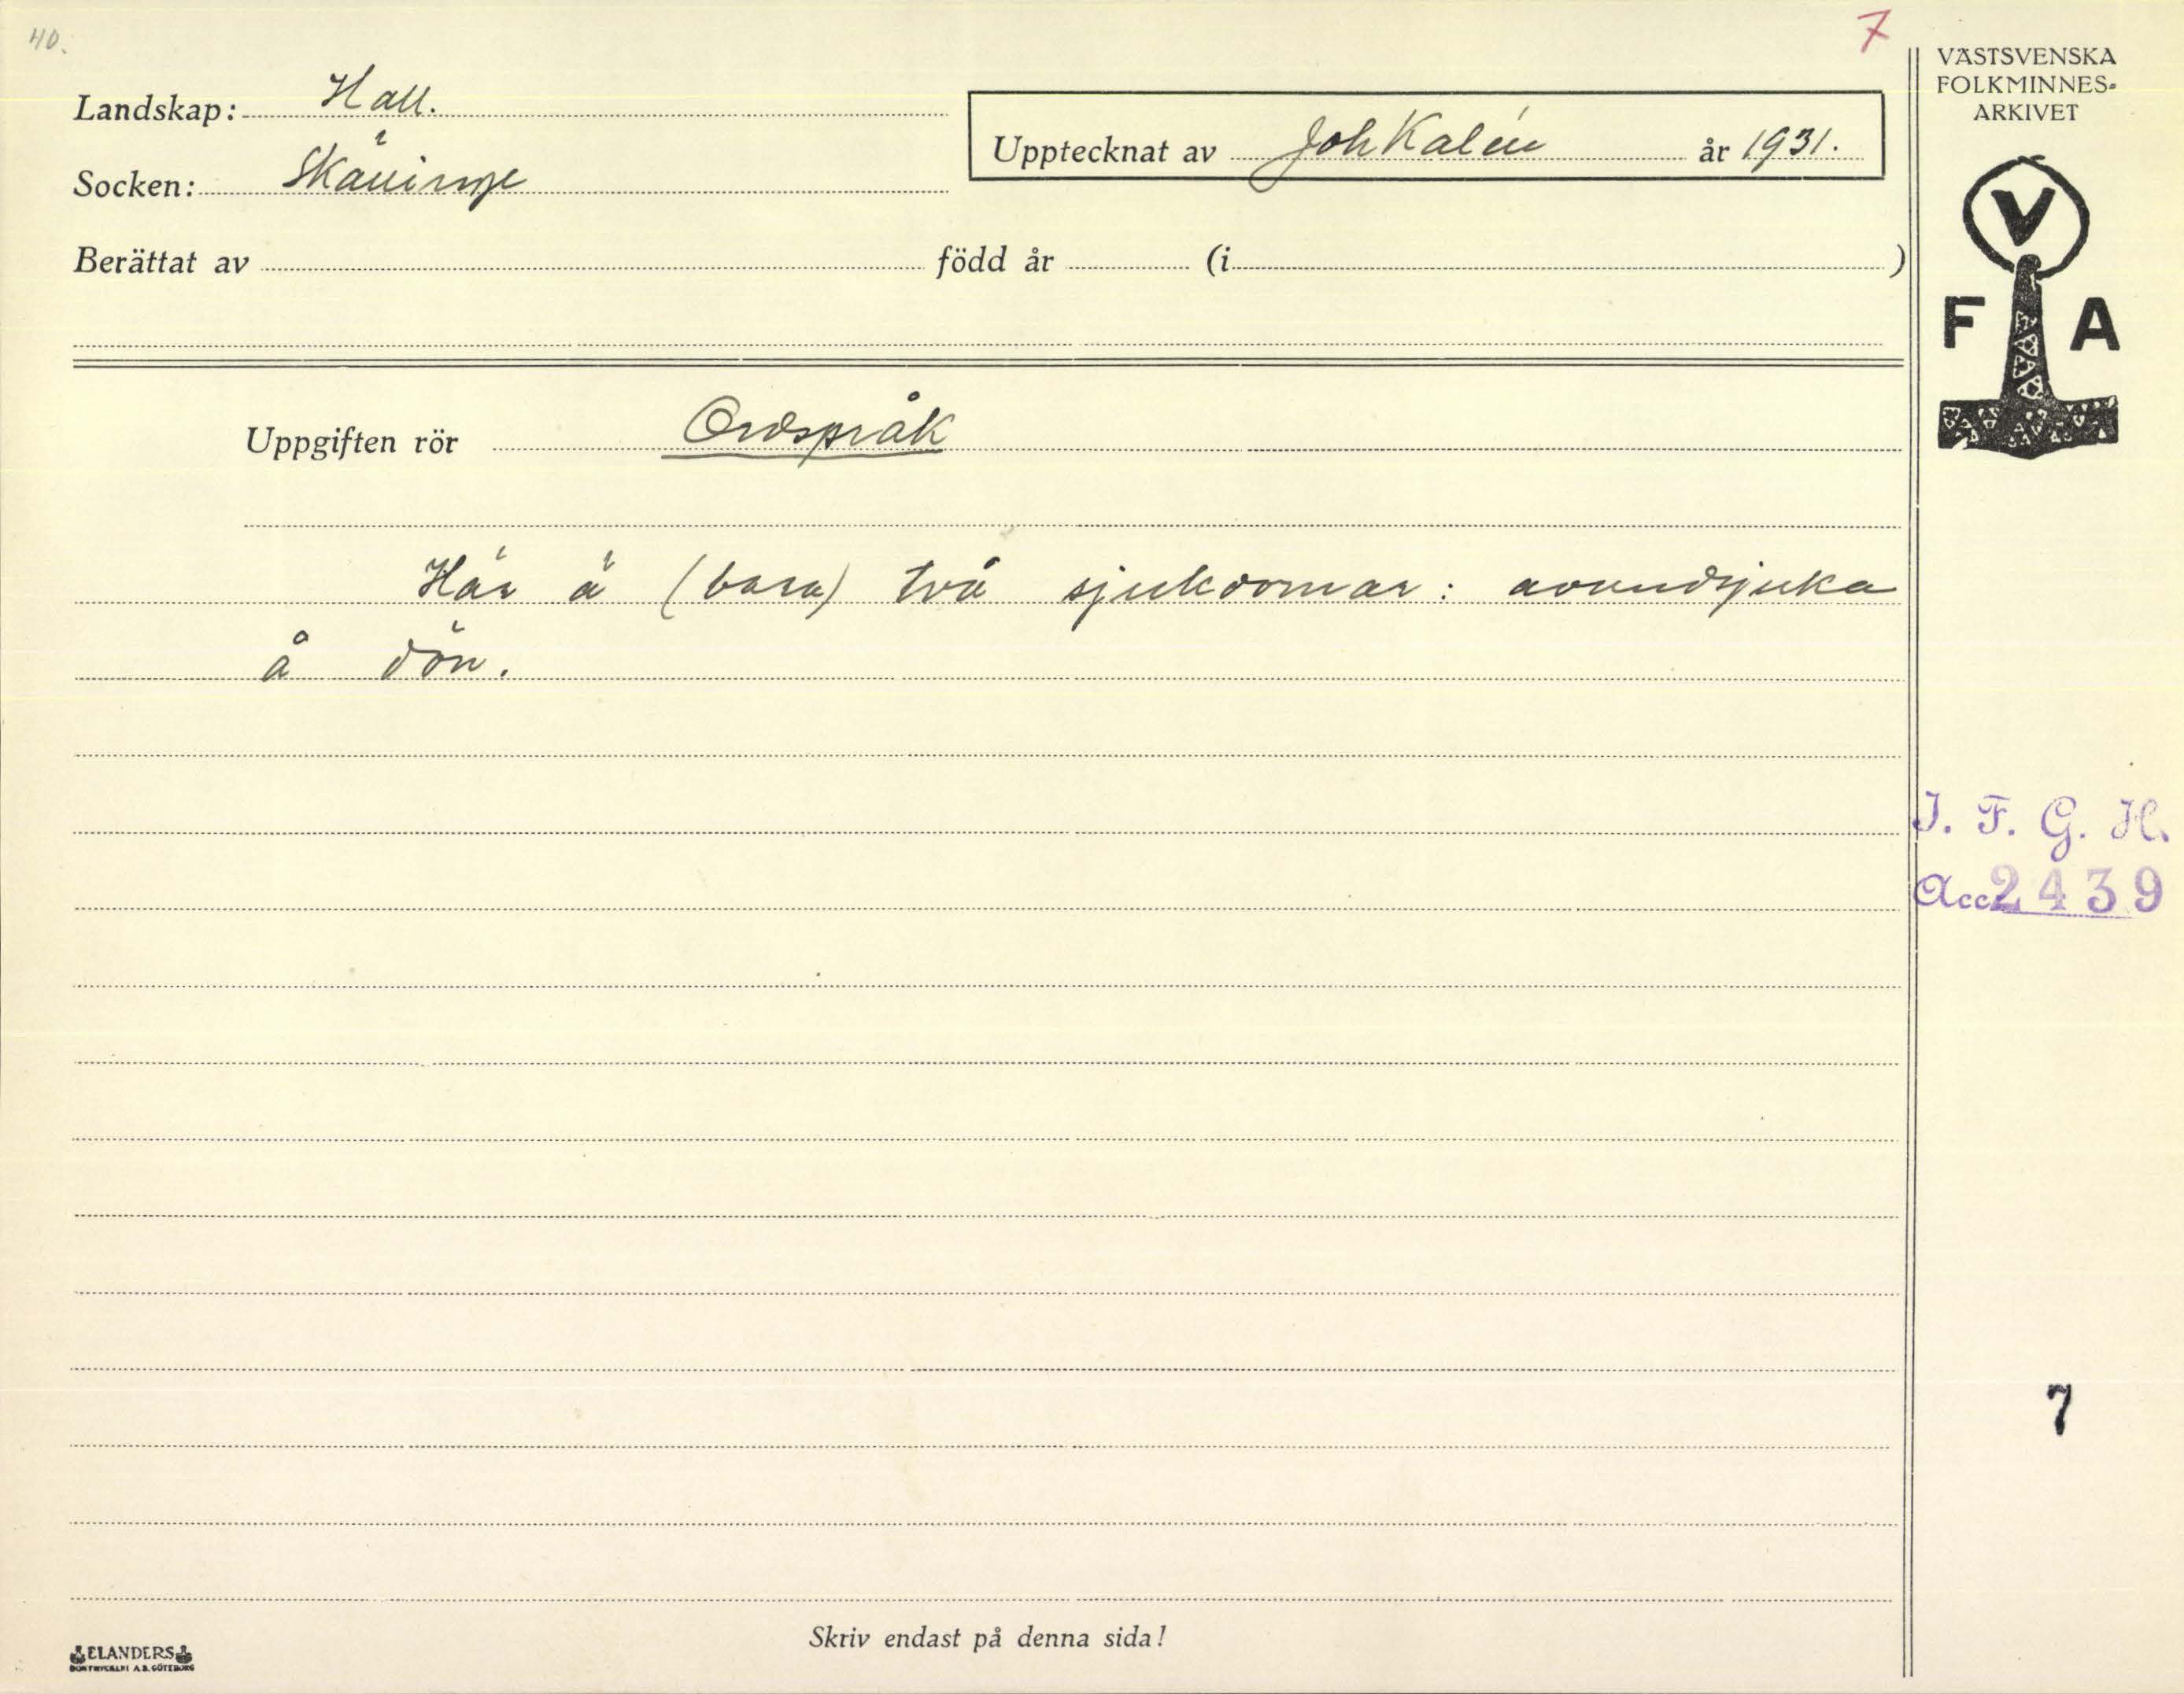 40.
7
Landskap: Hall.
Socken: Skällinge
Upptecknat av Joh Kalén år 1931.
Berättat av född år (i )
VÄSTSVENSKA
FOLKMINNES-
ARKIVET
V
F A
Uppgiften rör Ordspråk
Här ä (bara) två sjukdomar: avundsjuka
å dön.
I. F. G. H.
Acc 2439
7
Skriv endast på denna sida!
ELANDERS
BOKTRYCKERI A.B. GÖTEBORG